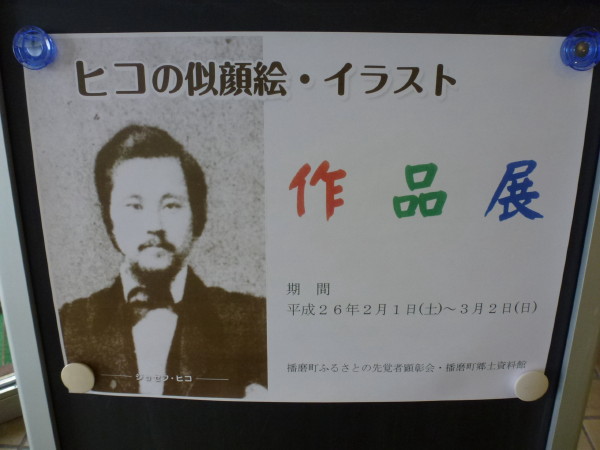 ヒコの似顔絵・イラスト
作品展
期 間
平成26年2月1日(土)～3月2日(日)
播磨町ふるさとの先覚者顕彰会・播磨町郷土資料館
ジョセフ・ヒコ